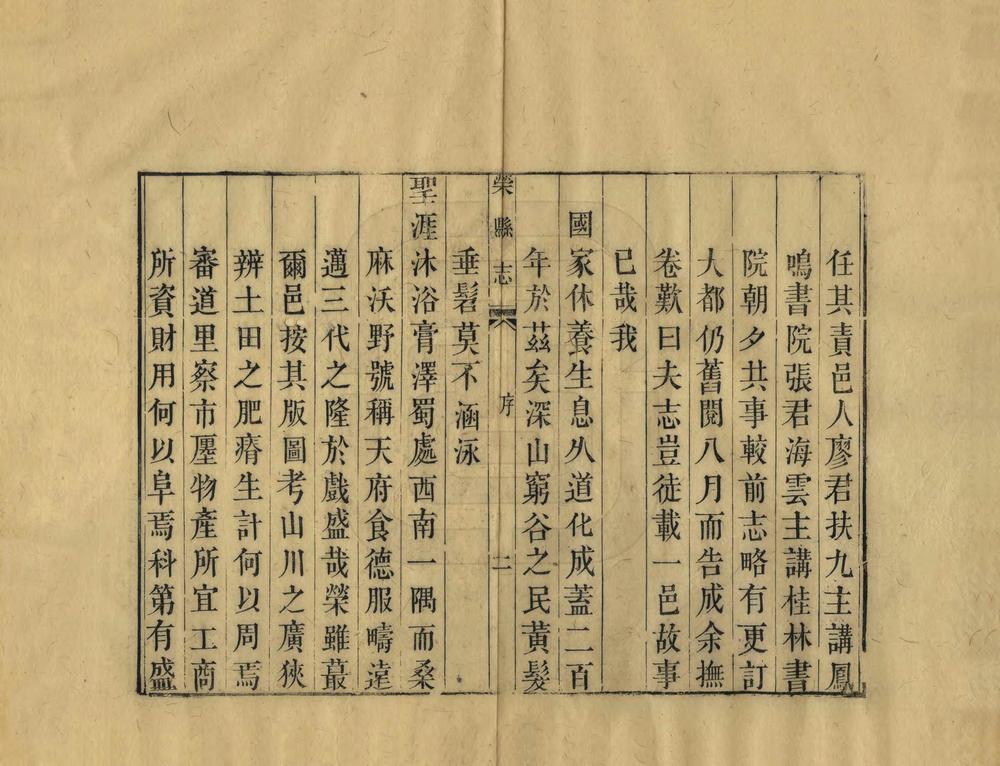 任其責邑人廖君扶九主講鳳
鳴書院張君海雲主講桂林書
院朝夕共事較前志略有更訂
大都仍舊閱八月而告成余撫
卷歎曰夫志豈徒載一邑故事
已哉我
國家休養生息久道化成蓋二百
年於茲矣深山窮谷之民黃髮
垂髫莫不涵泳
榮縣志 序 二
聖涯沐浴膏澤蜀處西南一隅而桑
麻沃野號稱天府食德服疇遠
邁三代之隆於戲盛哉榮雖蕞
爾邑按其版圖考山川之廣狹
辨土田之肥瘠生計何以周焉
審道里察市廛物產所宜工商
所資財用何以阜焉科第有盛